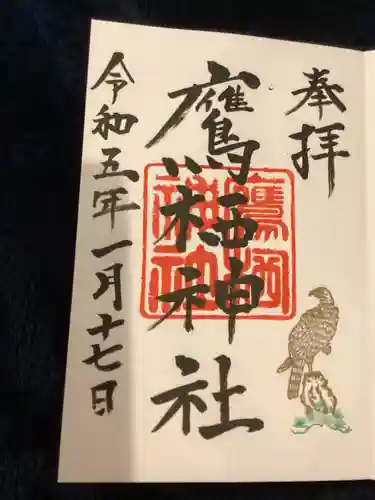 奉拝
鷹栖神社
鷹栖神社
令和五年一月十七日